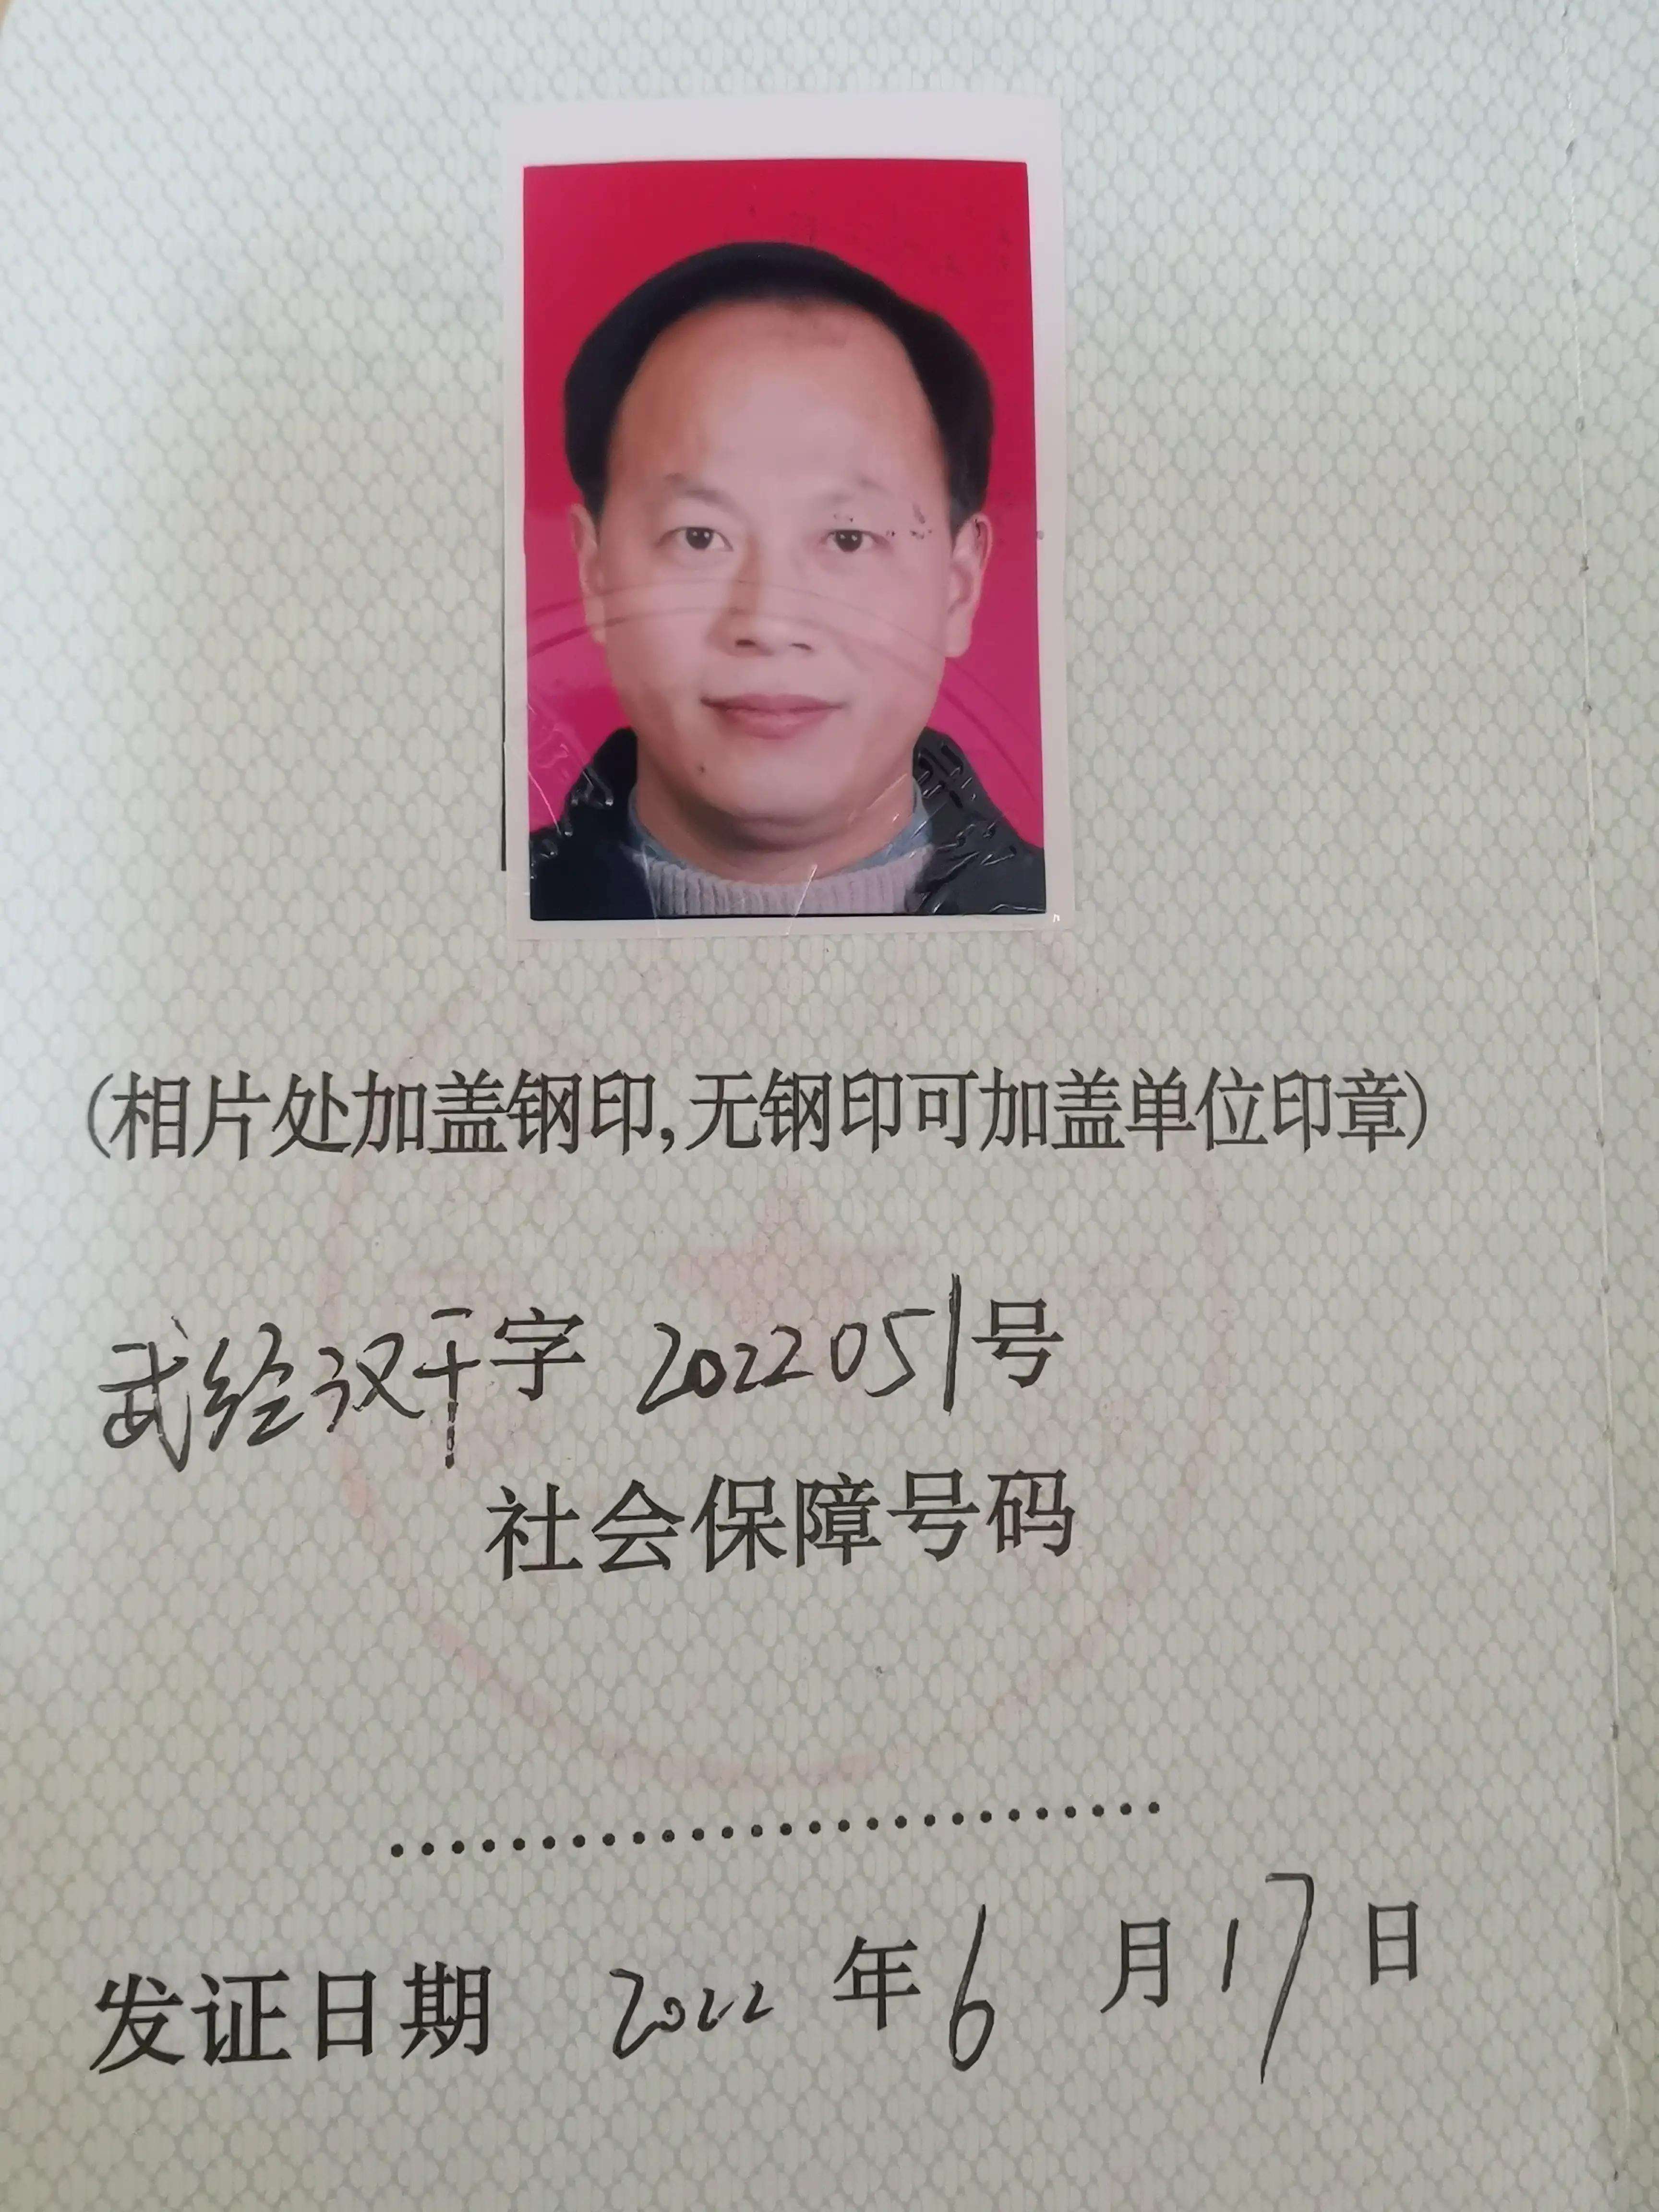 (相片处加盖钢印,无钢印可加盖单位印章)
武经汉干字 2022051号
社会保障号码
发证日期 2022 年 6 月 17 日